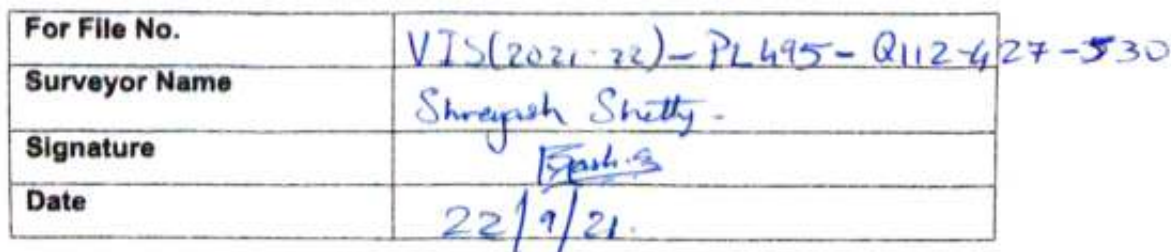 For File No. VIS(2021-22)-PL495-Q112-427-530
Surveyor Name Shreyash Shetty.
Signature
Date 22/9/21.